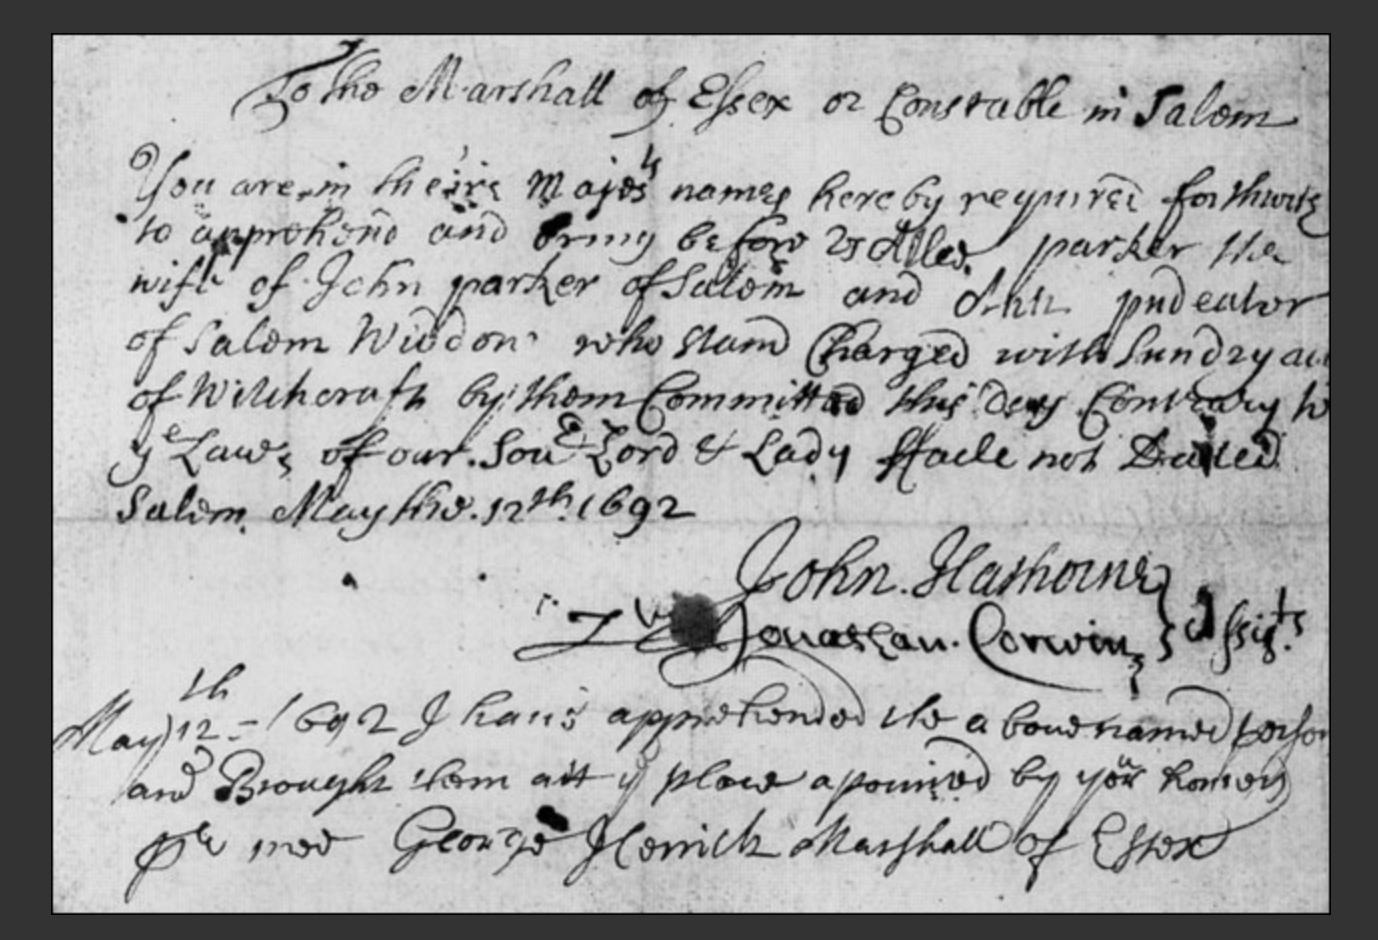 To the Marshall of Essex or Constable in Salem
You are in theire Majes^ts names hereby required forthwith
to apprehend and bring before us Allce parker the
wife of John parker of Salem and Ann pudeator
of Salem Widdow who stand Charged with sundry acts
of Witchcraft by them Committed this day Contrary to
y^e Laws of our Sou^e Lord & Lady ffaile not Dated
Salem May the 12^th 1692
John Hathorne
Jonathan Corwin } Assis^ts
May 12^th - 1692 I haue apprehended the aboue named person
and Brought them att y^e place apointed by yo^ur honors
p^r mee George Herrick Marshall of Essex